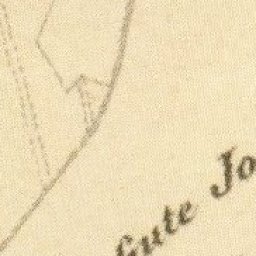 Gute Jo